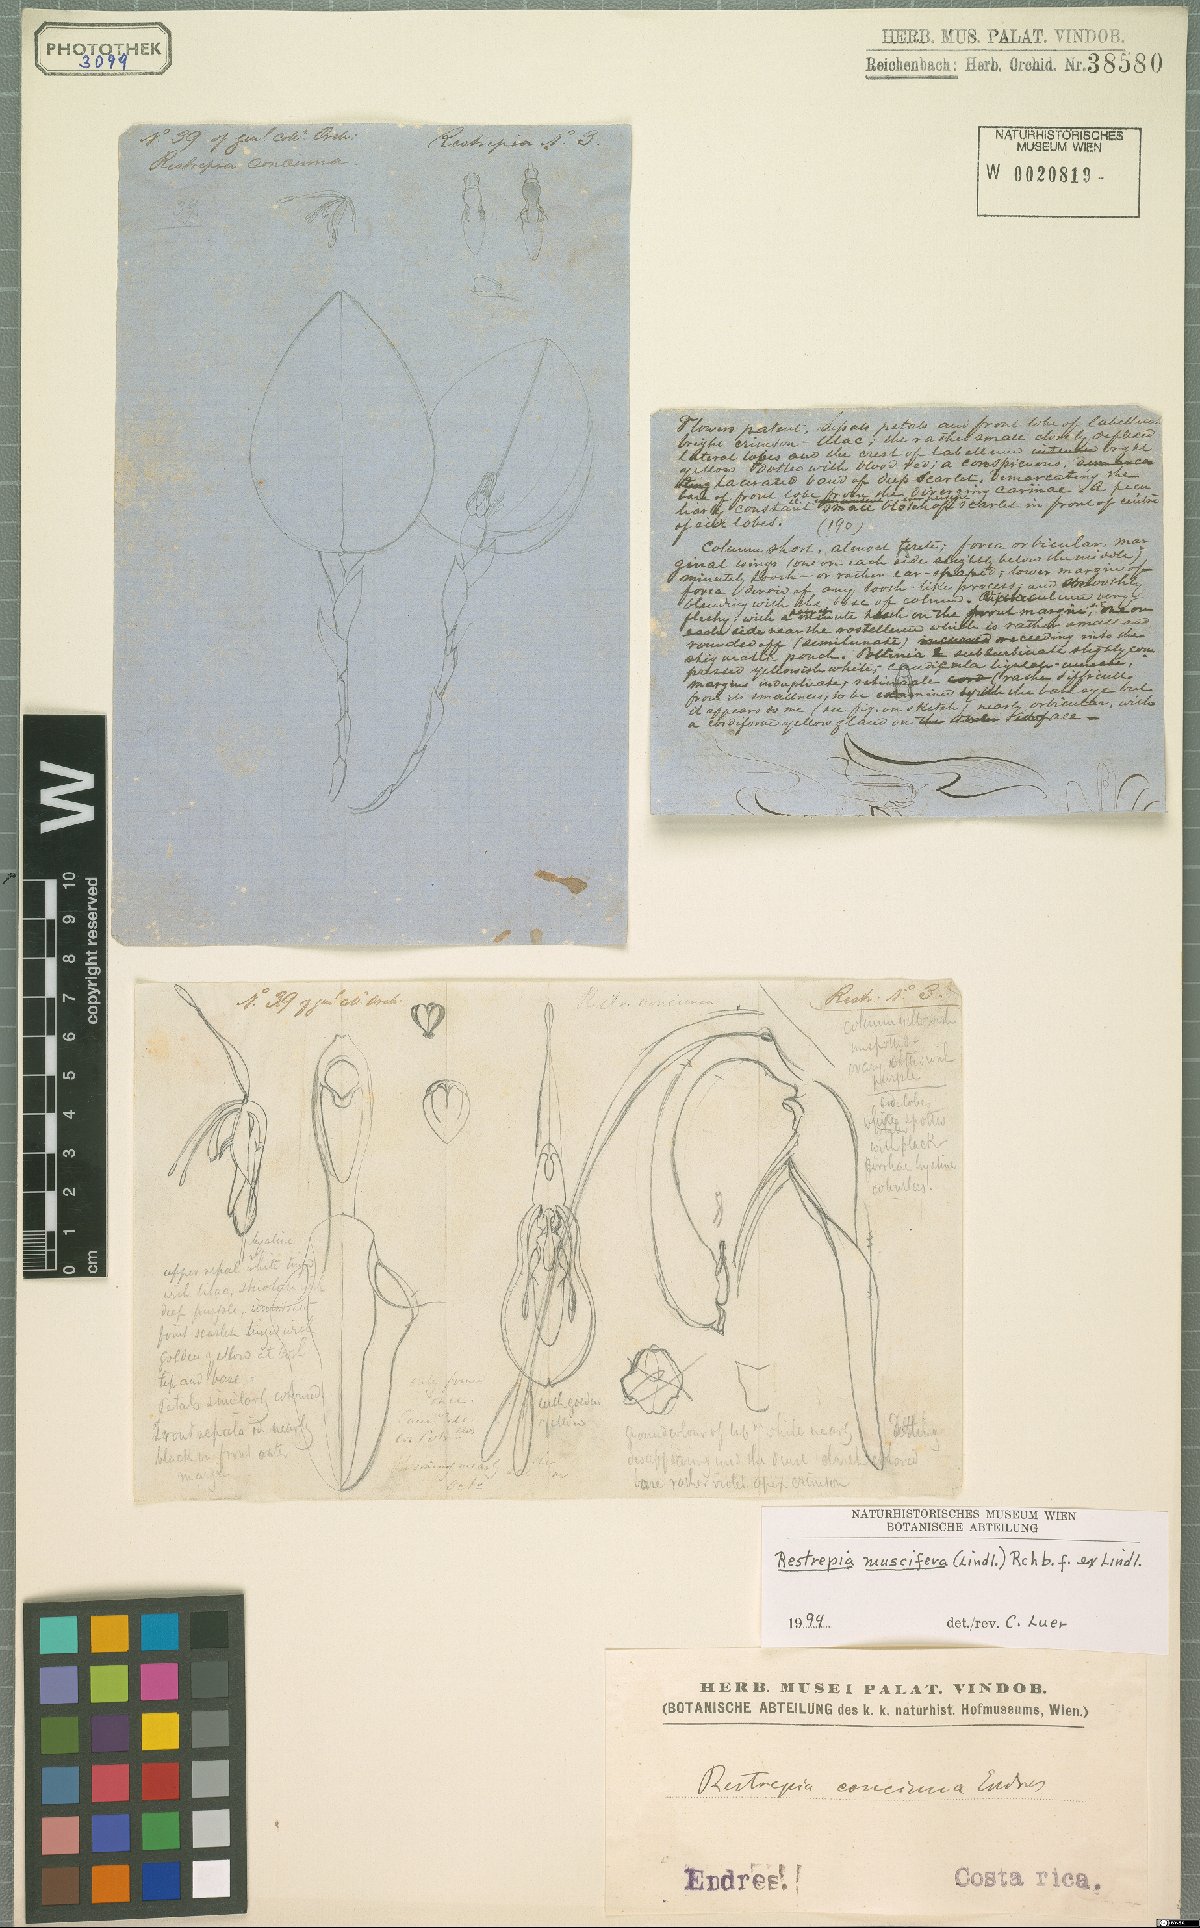 PHOTOTHEK
3099
HERB. MUS. PALAT. VINDOB.
Reichenbach: Herb. Orchid. Nr. 38580
NATURHISTORISCHES
MUSEUM WIEN
W 0020819-
No 39 of genl coll. Orch:
Restrepia No 3.
Restrepia concinna
39
Flowers patent; sepals petals and front lobe of labellum
bright crimson-lilac; the rather small closely deflexed
lateral lobes and the crest of labellum bright
yellow dotted with blood red; a conspicuous,
saturated band of deep scarlet, demarcating the
base of front lobe from the diverging carinae. A pecu
liarly constant small blotch of scarlet in front of centre
of side lobes. (190)
Column short, almost terete; fovea orbicular, mar
ginal wings (one on each side slightly below the middle)
minutely tooth- or rather ear-shaped; lower margin of
fovea devoid of any tooth-like process, and smoothly
blending with the base of column. very
fleshy, with a minute tooth on the front margin, one on
each side near the rostellum which is rather small and
rounded off (semilunate) receeding into the
stigmatic pouch. Pollinia 2 slightly com
pressed yellowish white; caudicula
margins induplicate; (rather difficult
from its smallness, to be examined with the bare eye but
it appears to me (see fig. on sketch) nearly orbicular, with
a cordiform yellow gland on the surface —
No 39 of genl coll. Orch.
Restr. concinna
Restr. No 3.
column yellowish
unspotted
ovary
purple
white spotted
with black
hyaline
upper sepal white
with lilac,
deep purple,
point scarlet tinged with
golden yellow at both
tip and base
Petals similarly coloured
Front sepals in nearly
black in front
margin
with golden
yellow
ground colour of lip white nearly
disappearing
are rather violet apex crimson
NATURHISTORISCHES MUSEUM WIEN
BOTANISCHE ABTEILUNG
Restrepia muscifera (Lindl.) Rchb. f. ex Lindl.
1994 det./rev. C. Luer
HERB. MUSEI PALAT. VINDOB.
(BOTANISCHE ABTEILUNG des k. k. naturhist. Hofmuseums, Wien.)
Restrepia concinna Endres
Endres. Costa rica.
W
0 1 2 3 4 5 6 7 8 9 10
cm
copyright reserved